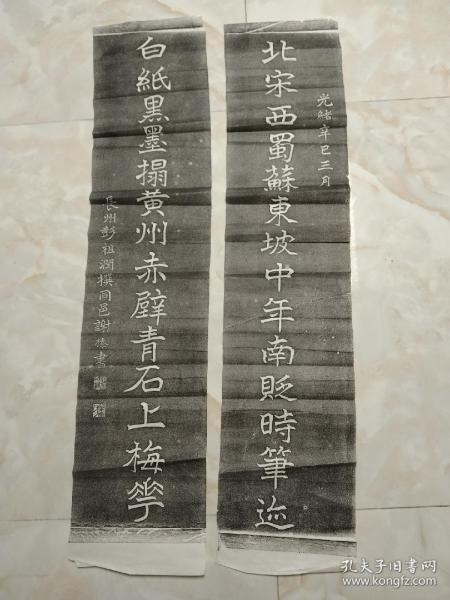 光緒辛巳三月
北宋西蜀蘇東坡中年南貶時筆迹
白紙黑墨搨黃州赤壁青石上梅花
長州彭祖潤撰同邑謝書
孔夫子旧书网
www.kongfz.com